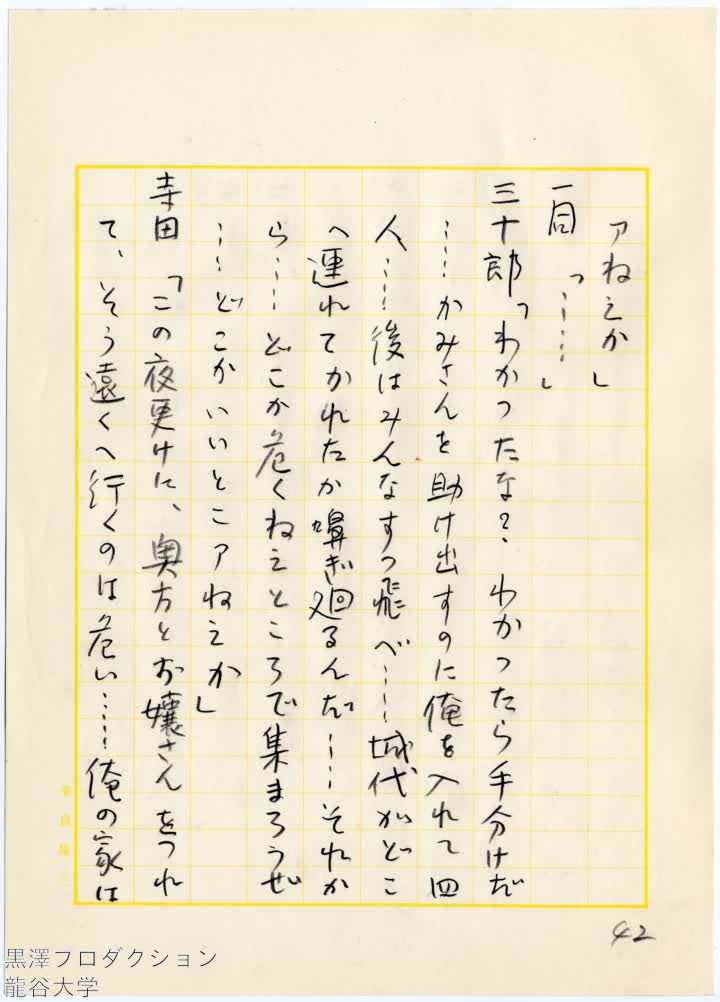 アねえか」
一同「……」
三十郎「わかつたな？　わかつたら手分けだ
……かみさんを助け出すのに俺を入れて四
人……後はみんなすつ飛べ……城代がどこ
へ連れてかれたか嗅ぎ廻るんだ……それか
ら……どこか危くねえところで集まろうぜ
……どこかいいとこアねえか」
寺田「この夜更けに、奥方とお嬢さんをつれ
て、そう遠くへ行くのは危い……俺の家は
42
黒澤プロダクション
龍谷大学